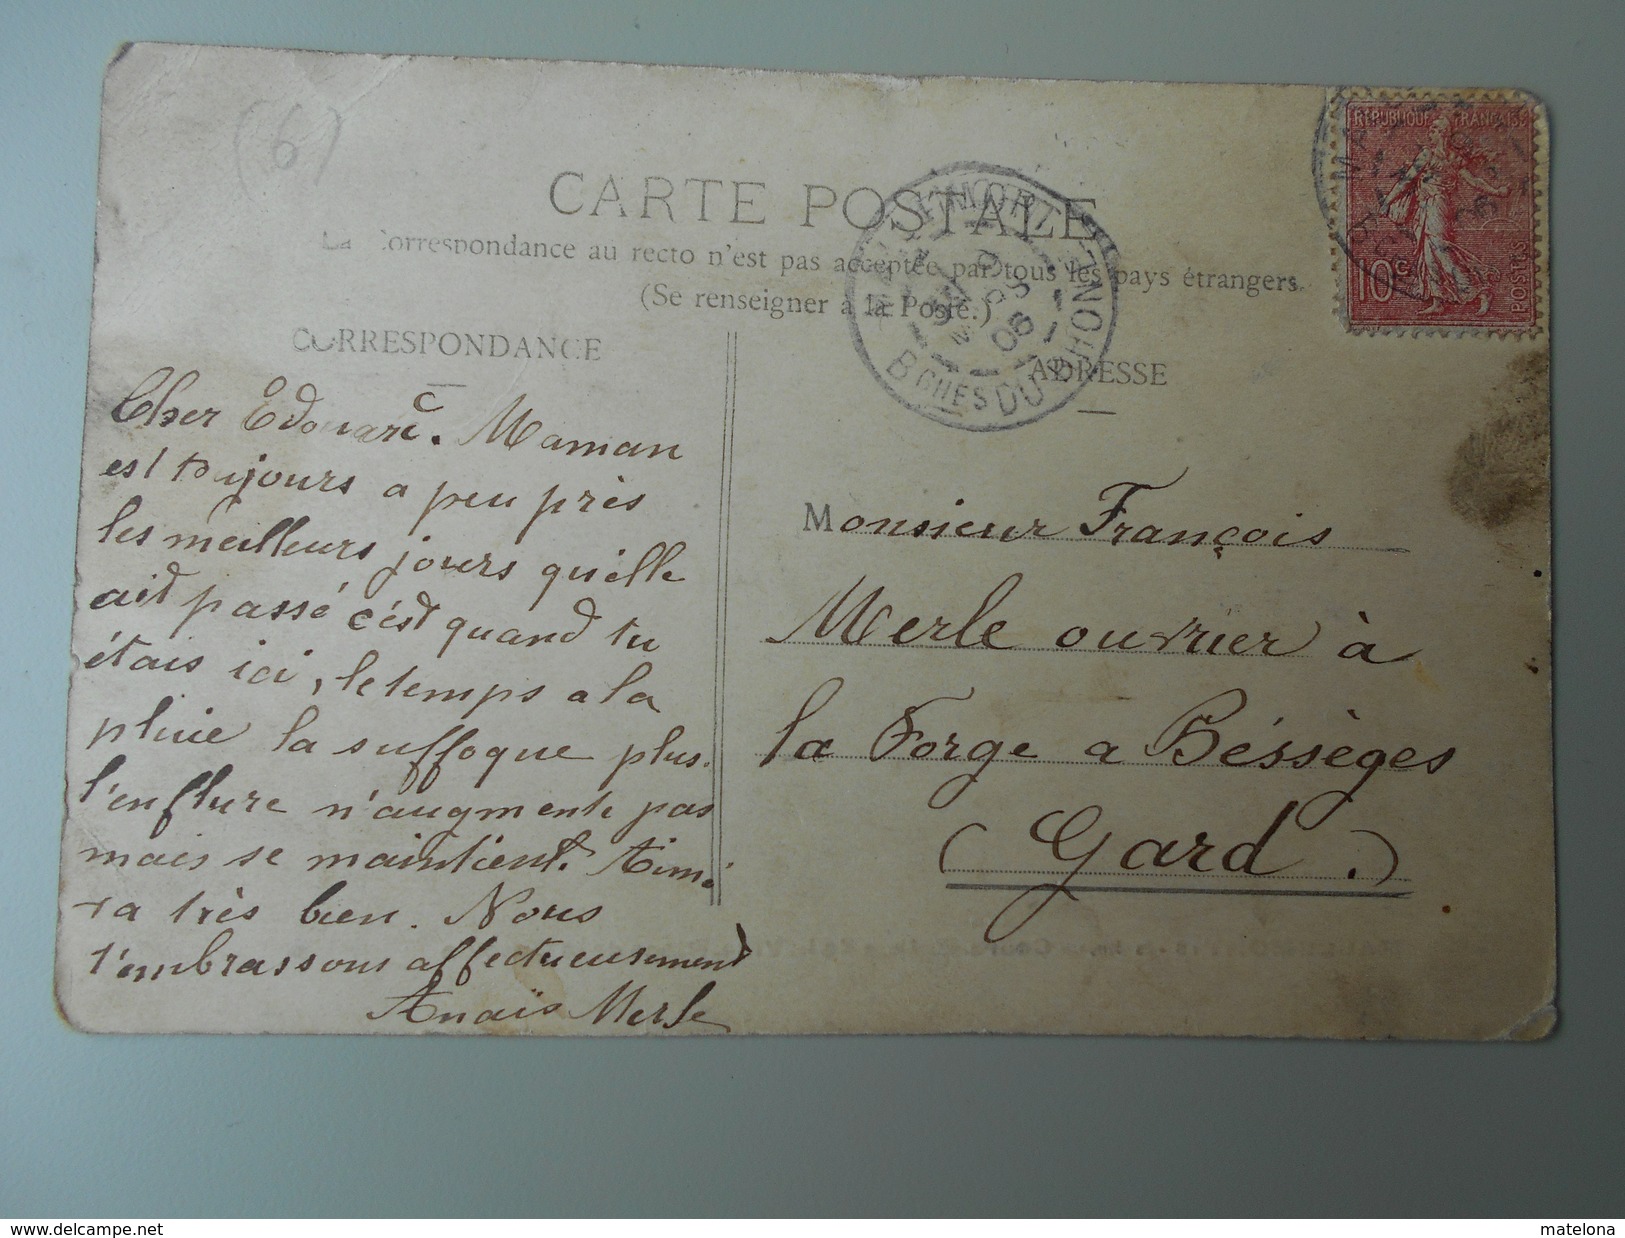 (6)
CARTE POSTALE
La Correspondance au recto n'est pas acceptée par tous les pays étrangers
(Se renseigner à la Poste.)
CORRESPONDANCE
Cher Edouard. Maman
est toujours a peu près
les meilleurs jours qu'elle
ait passé c'est quand tu
étais ici, le temps a la
pluie la suffoque plus.
l'enflure n'augmente pas
mais se maintient. Aimé
va très bien. Nous
t'embrassons affectueusement
Anaïs Merle
ADRESSE
Monsieur François
Merle ouvrier à
la Forge a Bésséges
(Gard.)
REPUBLIQUE FRANÇAISE
10 c.
POSTES
BCHES DU RHONE
06
matelona
www.delcampe.net